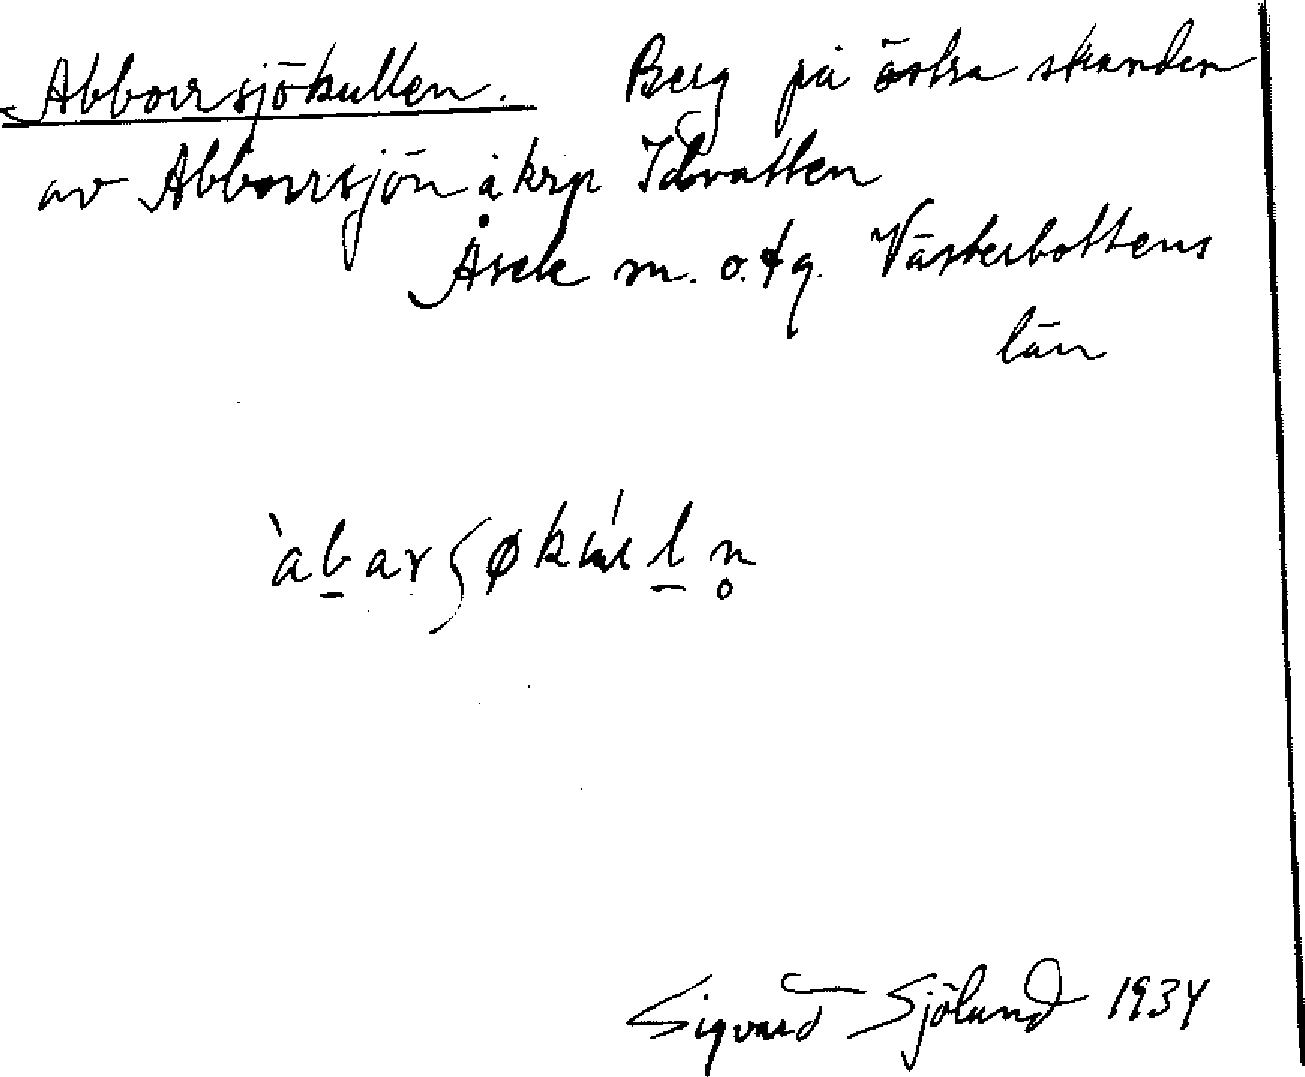 Abborrsjökullen. Berg på östra stranden
av Abborrsjön å krp Idvatten
Åsele sn. o. tg. Västerbottens
län
Sigvard Sjölund 1934